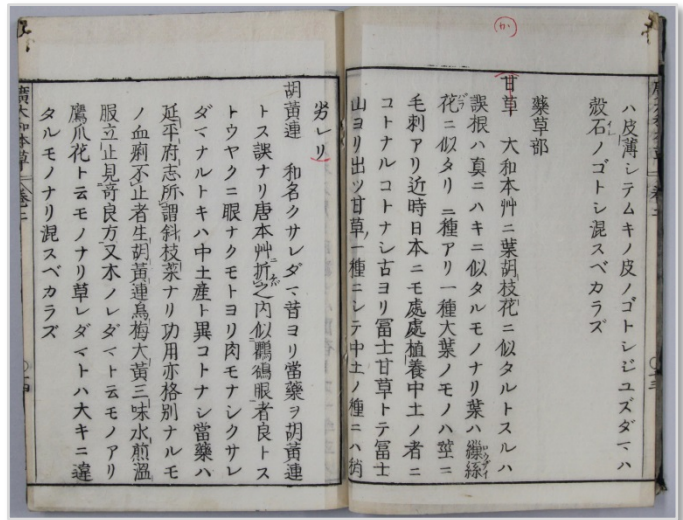 か
ハ皮薄シテムキノ皮ノゴトシジユズダマハ
殻石ノゴトシ混スベカラズ
薬草部
甘草 大和本艸ニ葉胡枝花ニ似タルトスルハ
誤根ハ真ニハキニ似タルモノナリ葉ハ繅絲
花ニ似タリ二種アリ一種大葉ノモノハ莖ニ
毛刺アリ近時日本ニモ處處植養中土ノ者ニ
コトナルコトナシ古ヨリ冨士甘草トテ冨士
山ヨリ出ツ甘草ノ一種ニシテ中土ノ種ニハ稍
劣レリ
胡黄連 和名クサレダマ昔ヨリ當藥ヲ胡黄連
トス誤ナリ唐本艸折之内似鸜鵒眼者良トス
トウヤクニ眼ナクモトヨリ肉モナシクサレ
ダマナルトキハ中土産ト異コトナシ當藥ハ
延平府志所謂斜枝菜ナリ功用亦格別ナルモ
ノ血痢不止者生胡黄連烏梅大黄三味水煎溫
服立止見奇良方又木ノレダマト云モノアリ
鷹爪花ト云モノナリ草レダマトハ大キニ違
タルモノナリ混スベカラズ
廣大和本草 卷二